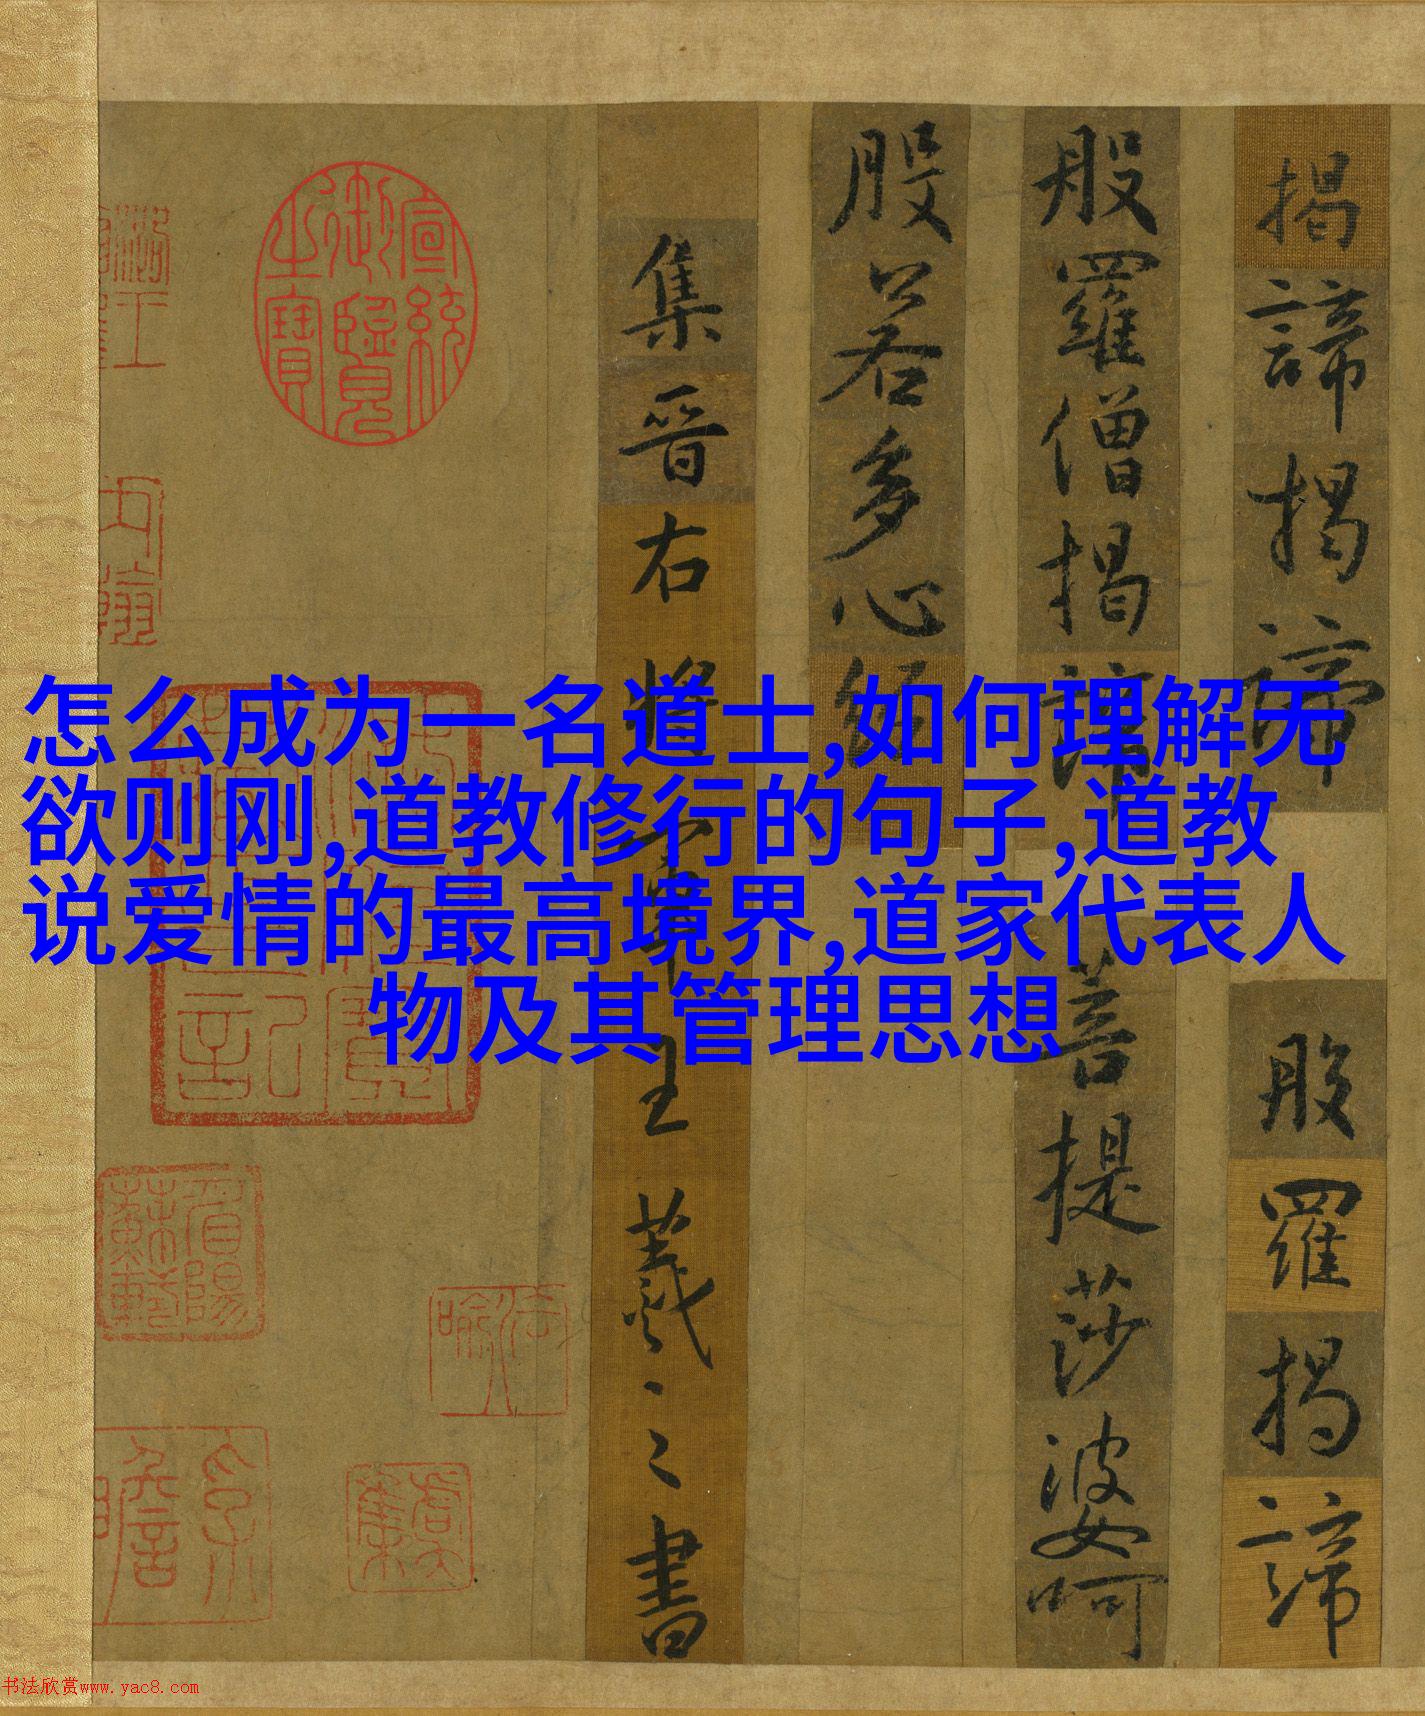 怎么成为一名道士,如何理解无
欲则刚,道教修行的句子,道教
说爱情的最高境界,道家代表人
物及其管理思想
揭諦揭諦般羅揭諦
般羅僧揭諦菩提莎婆呵
般若多心經
集晉右將軍王羲之書
宣統御覽之寶
书法欣赏www.yac8.com